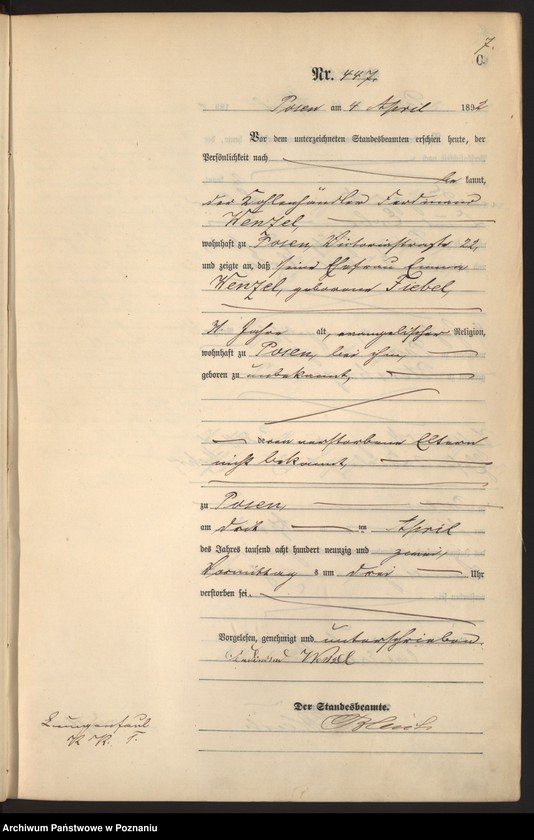 7.
C.
Nr. 447.
Posen am 4 April 1892
Vor dem unterzeichneten Standesbeamten erschien heute, der
Persönlichkeit nach
be kannt,
der Kohlenhändler Ferdinand
Wenzel,
wohnhaft zu Posen, Victoriastraße 22,
und zeigte an, daß seine Ehefrau Emma
Wenzel, geborene Fiebel,
Jahre alt, evangelischer Religion,
wohnhaft zu Posen, bei ihm,
geboren zu unbekannt,
deren verstorbene Eltern
nicht bekannt,
zu Posen,
am drit en April
des Jahres tausend acht hundert neunzig und zwei,
Vormittag s um drei Uhr
verstorben sei.
Vorgelesen, genehmigt und unterschrieben
Ferdinand Wenzel
Der Standesbeamte.
Lungenfaul
K. K. T.
Archiwum Państwowe w Poznaniu